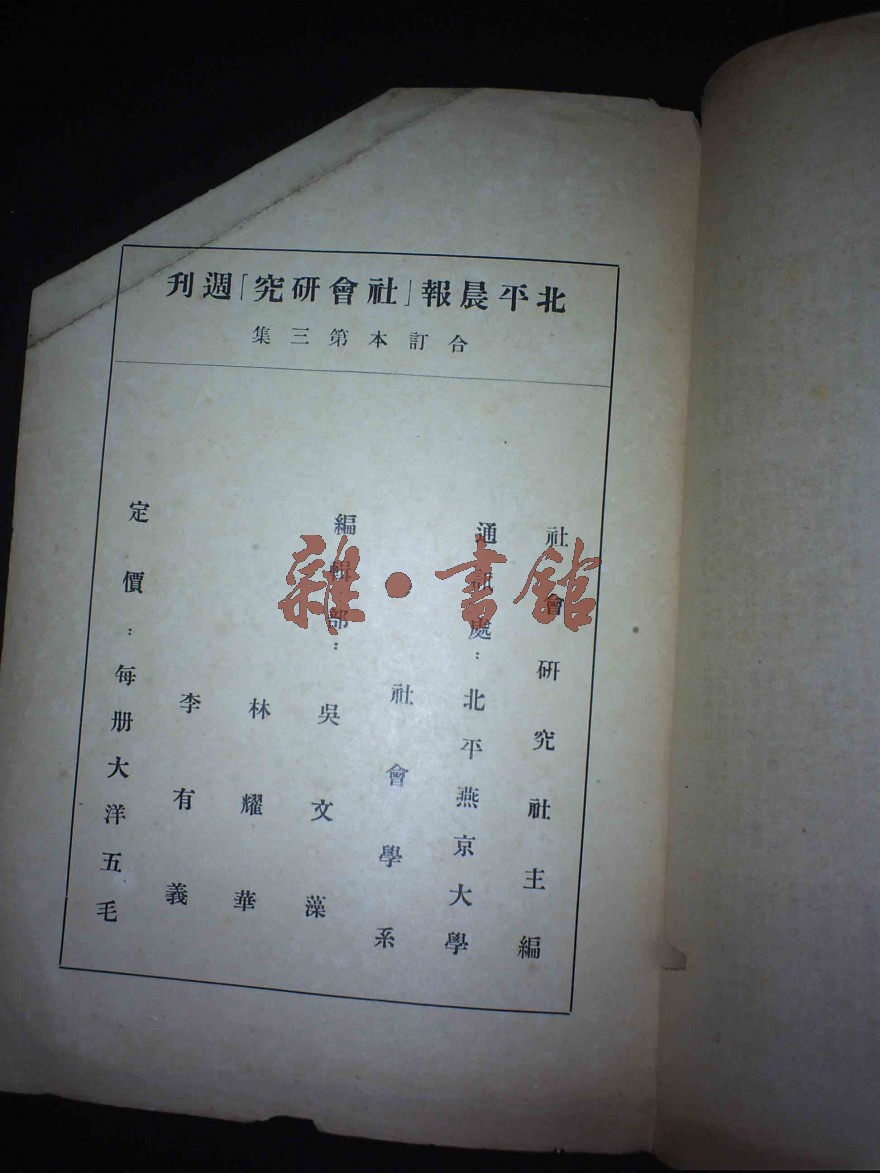 北平晨報「社會研究」週刊
合訂本第三集
社會研究社主編
通訊處：北平燕京大學
社會學系
編輯部：吳文藻
林耀華
李有義
定價：每册大洋五毛
雜·書館